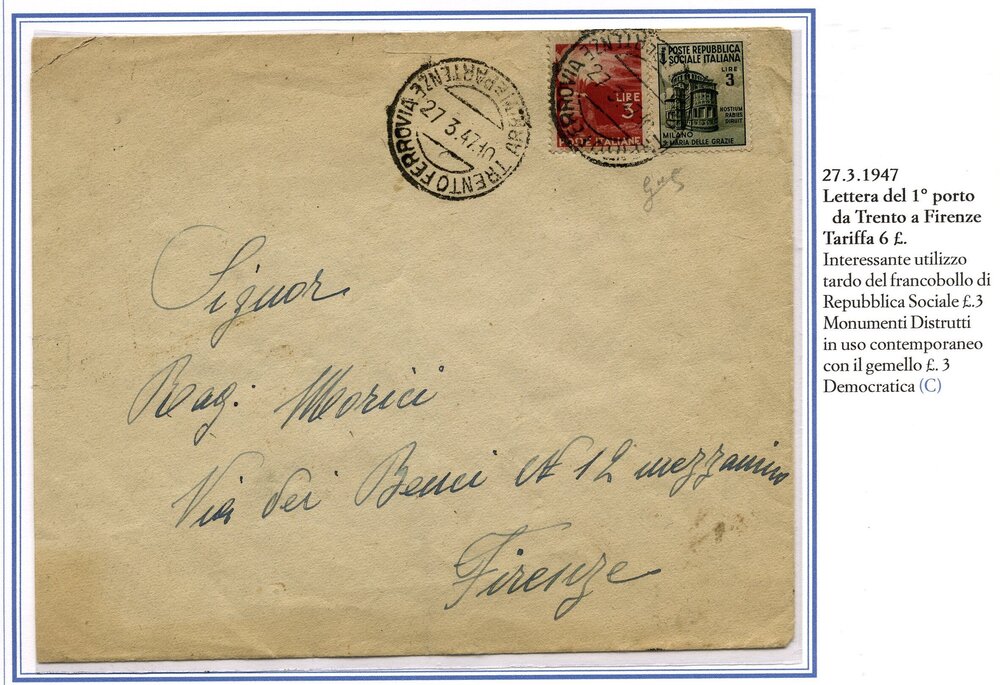 TRENTO FERROVIA
ARRIVI E PARTENZE
27.3.47.10
LIRE
3
POSTE ITALIANE
POSTE REPUBBLICA
SOCIALE ITALIANA
LIRE
3
HOSTIUM
RABIES
DIRUIT
MILANO
S. MARIA DELLE GRAZIE
FERROVIA
27
Signor
Rag. Morici
Via dei Benci N 12 mezzanino
Firenze
27.3.1947
Lettera del 1° porto
da Trento a Firenze
Tariffa 6 £.
Interessante utilizzo
tardo del francobollo di
Repubblica Sociale £.3
Monumenti Distrutti
in uso contemporaneo
con il gemello £. 3
Democratica (C)